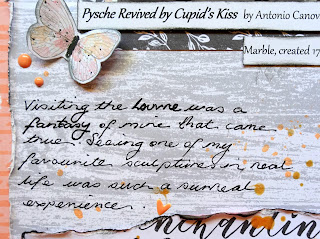 Pysche Revived by Cupid's Kiss by Antonio Canov
Marble, created 17
Visiting the Louvre was a
fantasy of mine that came
true. Seeing one of my
favourite sculptures in real
life was such a surreal
experience.
enchantin